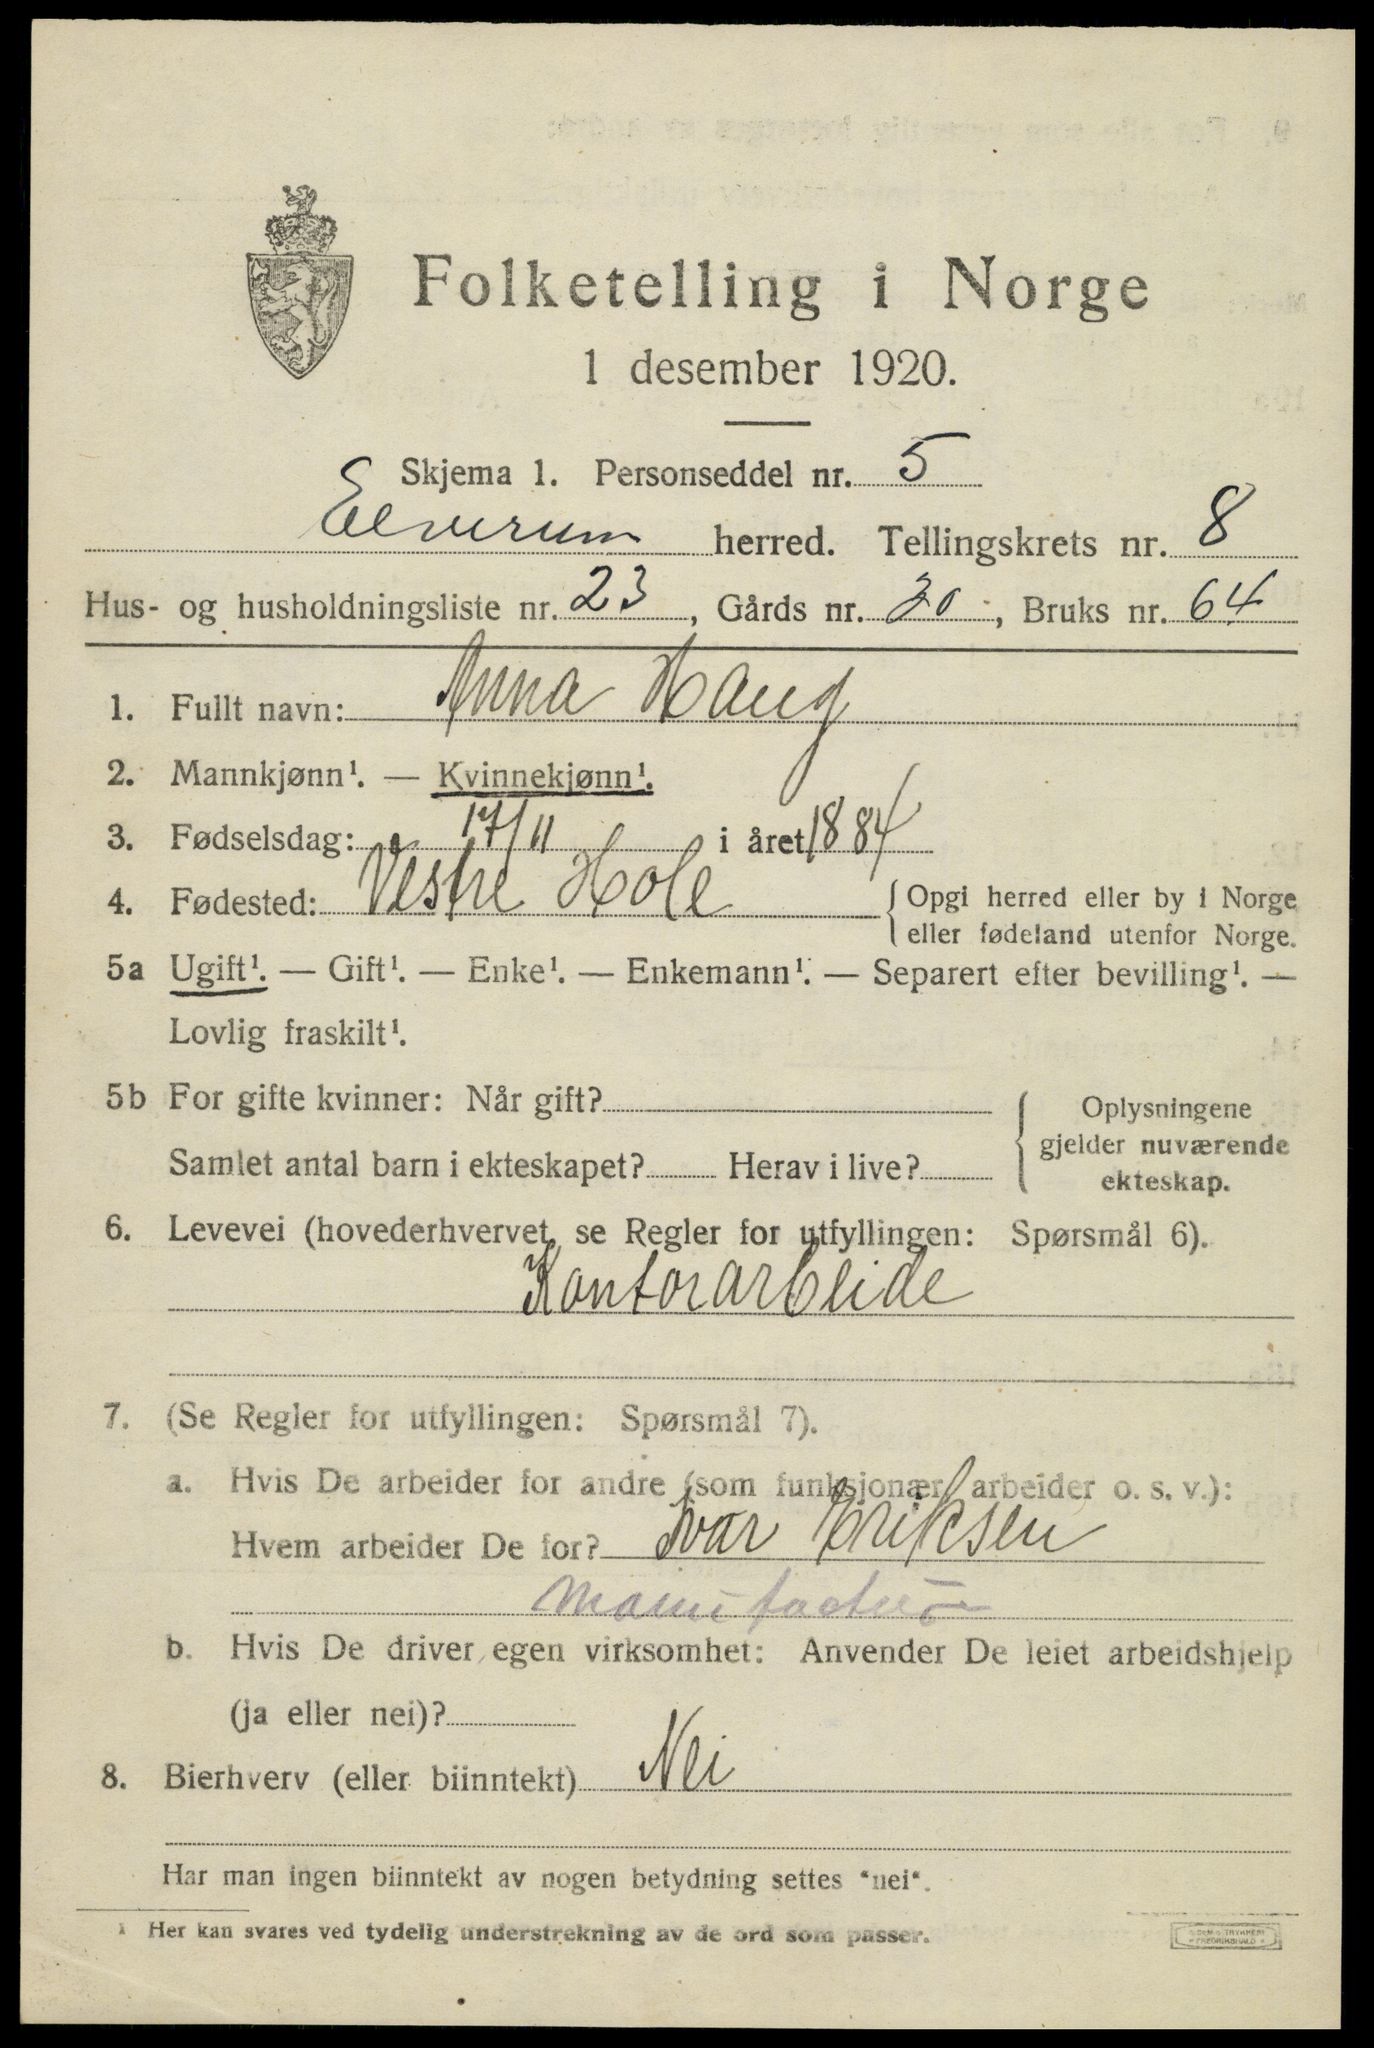 Folketelling i Norge
1 desember 1920.
Skjema 1. Personseddel nr. 5
Elverum herred. Tellingskrets nr. 8
Hus- og husholdningsliste nr. 23, Gårds nr. 20, Bruks nr. 64
1. Fullt navn: Anna Haug
2. Mannkjønn¹. — Kvinnekjønn¹.
3. Fødselsdag: 17/11 i året 1884
4. Fødested: Vestre Hole {Opgi herred eller by i Norge
eller fødeland utenfor Norge.
5a Ugift¹. — Gift¹. — Enke¹. — Enkemann¹. — Separert efter bevilling¹. —
Lovlig fraskilt¹.
5b For gifte kvinner: Når gift?
Samlet antal barn i ekteskapet? Herav i live?
Oplysningene
gjelder nuværende
ekteskap.
6. Levevei (hovederhvervet, se Regler for utfyllingen: Spørsmål 6).
Kontorarbeide
7. (Se Regler for utfyllingen: Spørsmål 7).
a. Hvis De arbeider for andre (som funksjonær, arbeider o. s. v.):
Hvem arbeider De for? Ivar Eriksen
b. Hvis De driver egen virksomhet: Anvender De leiet arbeidshjelp
(ja eller nei)?
8. Bierhverv (eller biinntekt) Nei
Har man ingen biinntekt av nogen betydning settes "nei".
¹ Her kan svares ved tydelig understrekning av de ord som passer.